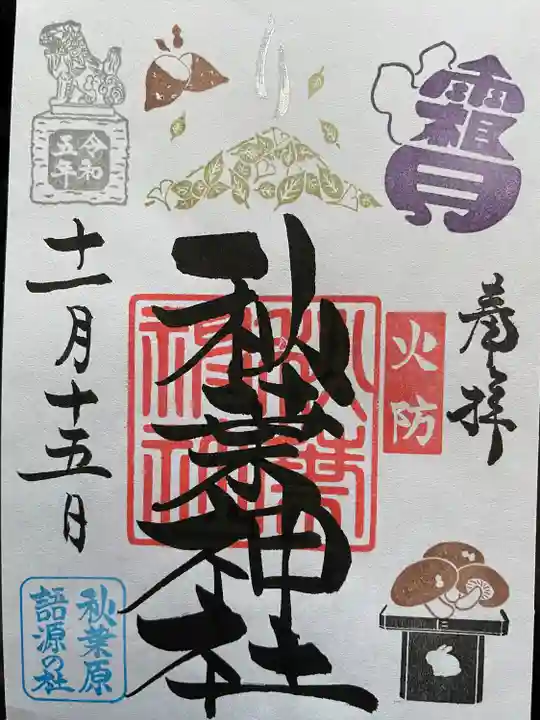 霜月
奉拝
火防
秋葉神社
秋葉神社
令和
五年
十一月十五日
秋葉原
語源の社